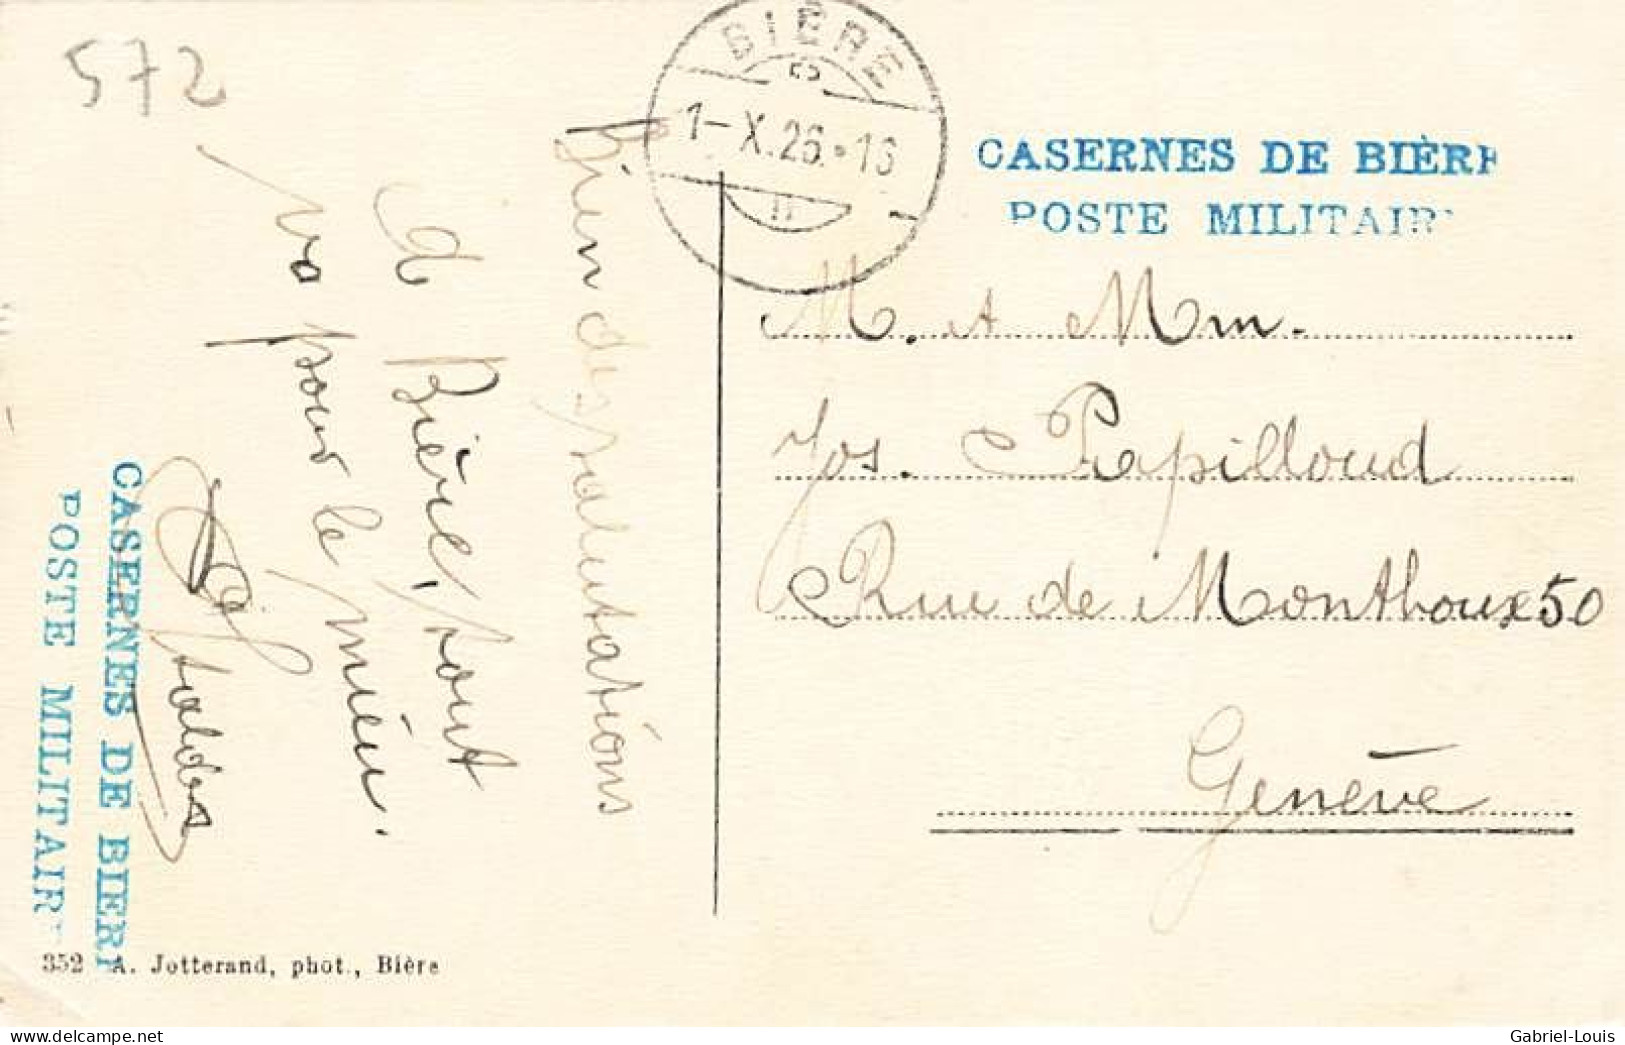 572
BIÈRE
1-X.26.-16
CASERNES DE BIÈRE
POSTE MILITAIR
M. et Mm.
Jos. Papilloud
Rue de Monthoux 50
Genève
Bien des salutations
de Bière, tout
va pour le mieu.
CASERNES DE BIERE
POSTE MILITAIR
352 A. Jotterand, phot., Bière
delcampe.net
Gabriel-Louis